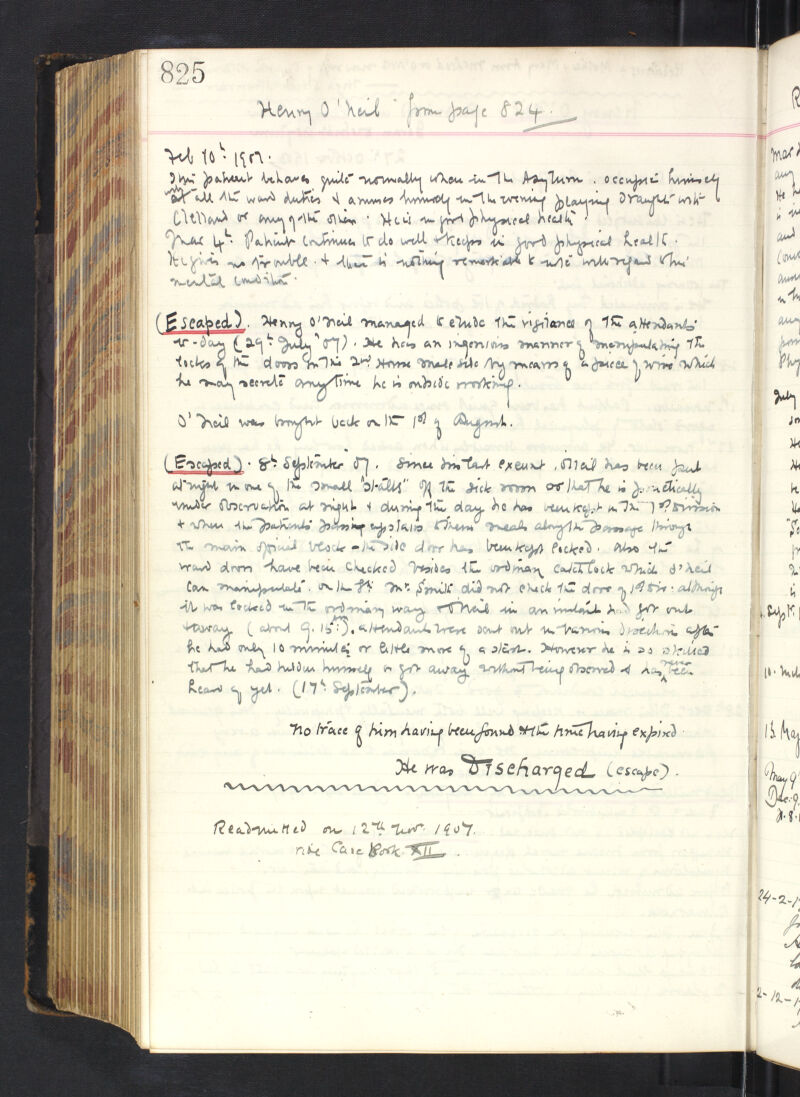 825
Henry O'Neil from page 824.
Feb 10th 1907.
This patient behaves quite normally when in the Asylum. occupies himself
with all the ward duties & amuses himself in the evening playing Draughts with
Clelland or any of the others. He is in good physical health
Mar 4th. Patient continues to do well & keeps in good physical health.
He gives no trouble. & there is nothing remarkable to note with regard to his
mental condition.
(Escaped). Henry O'Neil managed to elude the vigilance of the attendants
to-day (29th July 07). He has an ingenious manner of manipulating the
locks of the doors in the 2nd House male side by means of a piece of wire which
he may secrete any time he is outside working.
O'Neil was brought back on the 1st of August.
(Escaped). 8th September 07. Since his last exeunt, O'Neil has been put
at night in one of the small "stalls" off the sick room so that he is practically
under observation at night & during the day he has been kept in the 1st Division
& when the patients passing upstairs to their meals along the passage through
the main official block - the side door has been kept locked. Also the
ward doors have been checked besides the ordinary catch lock which O'Neil
can manipulate. on the 8th Mr. Smith did not check the door of 1st Div: although
it was locked in the ordinary way O'Neil in an instant had got out
& away (about 9.15 am). attendants were sent out in various directions after
he had only 10 minutes or little more of a start. However he is so skilled
that he had hidden himself or got away without being observed & has never been
heard of yet. (17th September).
No trace of him having been found & the time having expired.
He was Discharged (escape).
Readmitted on 12th Nov. 1907.
vide Case Book XII.
July
Sept
10.
13 May
May 9
Dec. 9
24-2-1
2-12-1